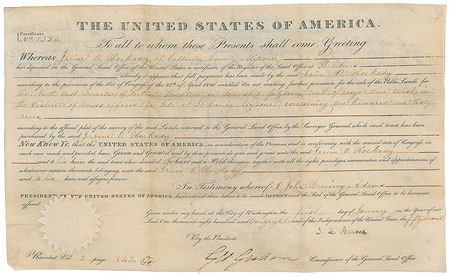 THE UNITED STATES OF AMERICA.
Certificate
To all to whom these Presents shall come, Greeting
Whereas Irvine O. Hockaday of Callaway County Missouri
has deposited in the General Land Office of the United States a certificate of the Register of the Land Office at St Louis
whereby it appears that full payment has been made by the said Irvine O. Hockaday
according to the provisions of the Act of Congress of the 24th of April 1820 entitled An act making further provision for the sale of the Public Lands for
in the District of Lands offered for Sale at St Louis, Missouri, containing One hundred and Sixty
acres
according to the official plat of the survey of the said Lands returned to the General Land Office by the Surveyor General which said tract has been
purchased by the said Irvine O. Hockaday
Now Know Ye, that the UNITED STATES OF AMERICA, in consideration of the Premises and in conformity with the several acts of Congress in
such case made and provided have Given and Granted and by these presents do give and grant unto the said Irvine O. Hockaday
and to his heirs the said tract above described To have and to Hold the same together with all the rights privileges immunities and appurtenances of
whatsoever nature thereunto belonging, unto the said Irvine O. Hockaday
and to his heirs and assigns forever
In Testimony whereof I, John Quincy Adams
PRESIDENT OF THE UNITED STATES OF AMERICA, have caused these Letters to be made PATENT and the Seal of the General Land Office to be hereunto
affixed.
Given under my hand at the City of Washington, the first day of January in the Year of our
Lord One thousand eight hundred and twenty eight and of the Independence of the United States the fifty second
By the President
J. Q. Adams
Recorded Vol. 3 page 343
Geo. Graham Commissioner of the General Land Office